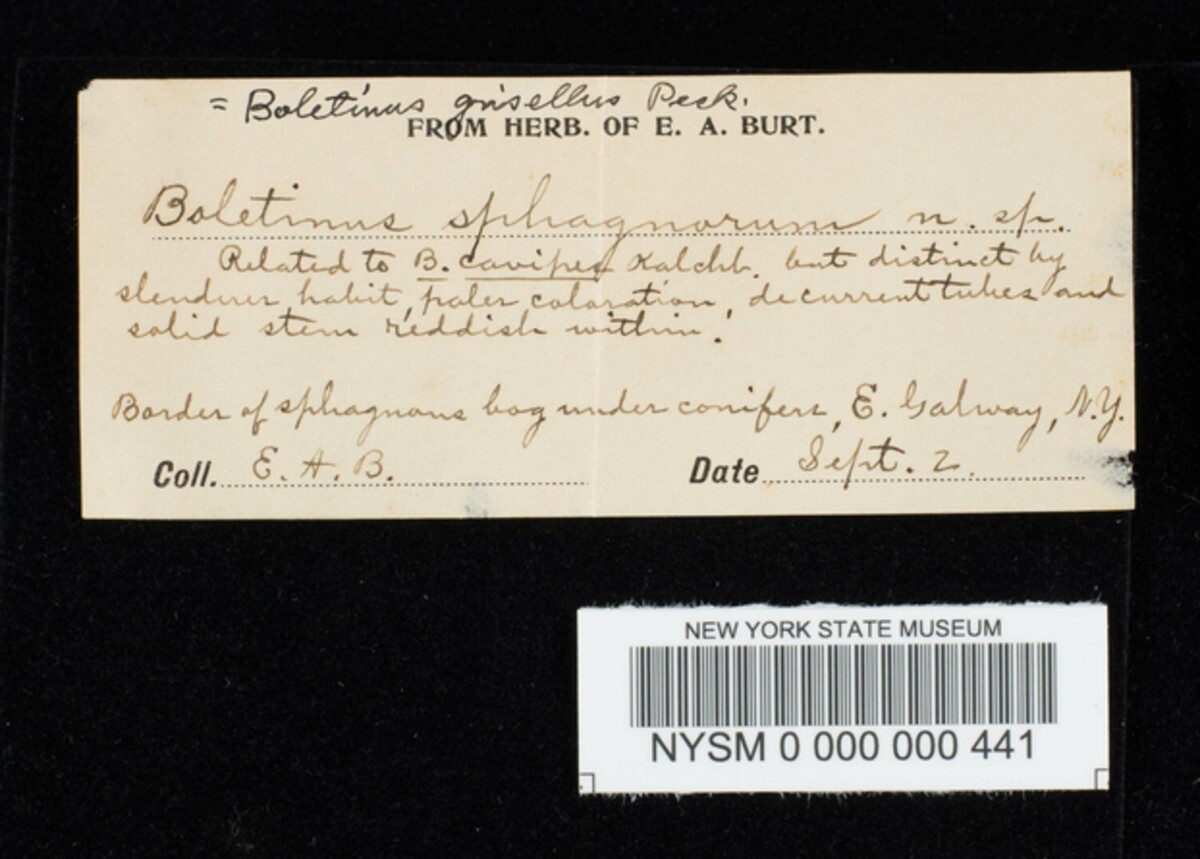 = Boletinus grisellus Peck.
FROM HERB. OF E. A. BURT.
Boletinus sphagnorum n. sp.
Related to B. cavipes Kalchb. but distinct by
slenderer habit, paler coloration, decurrent tubes and
solid stem reddish within.
Border of sphagnous bog under conifers, E. Galway, N.Y.
Coll. E. A. B. Date Sept. 2.
NEW YORK STATE MUSEUM
NYSM 0 000 000 441